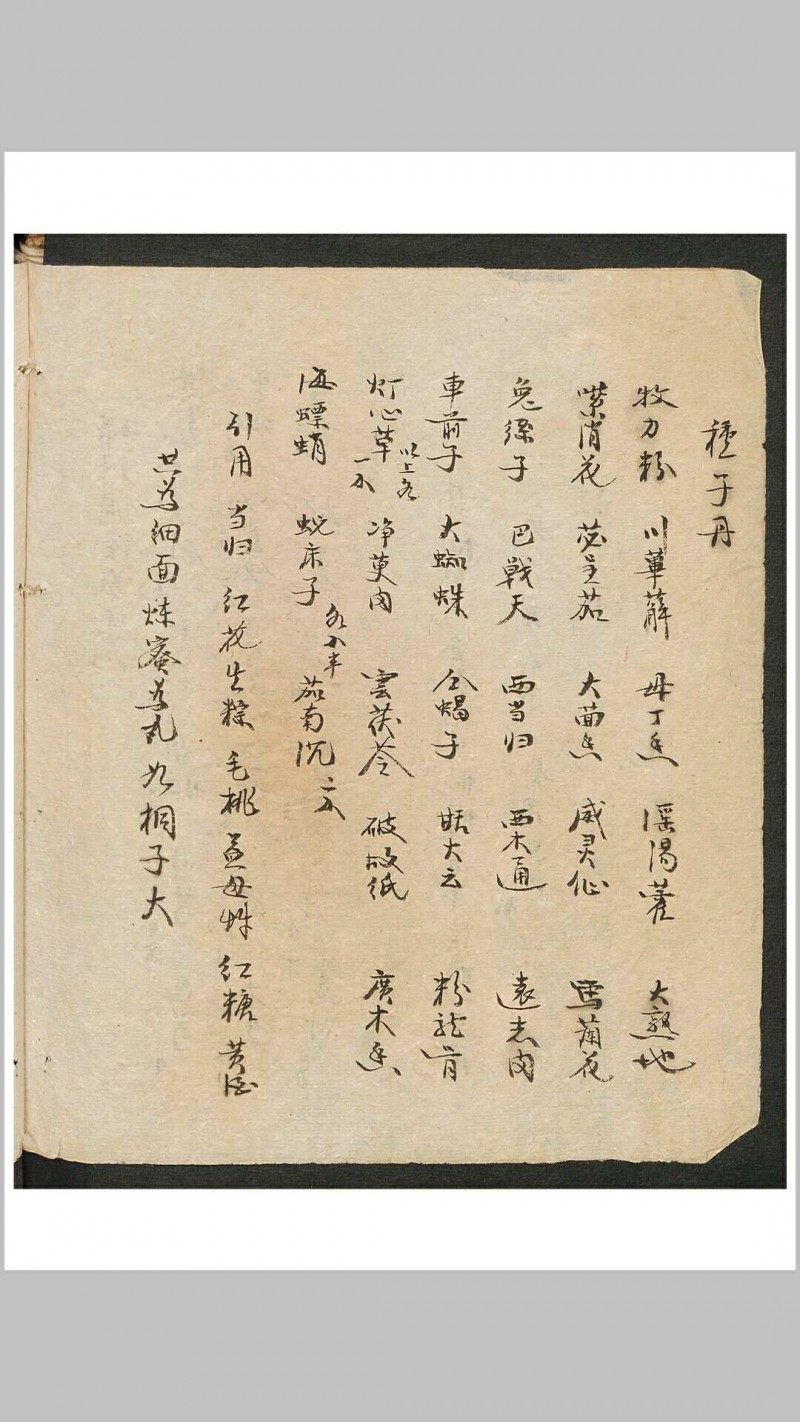 種子丹
牧力粉 川萆薢 母丁香 淫陽藿 大熟地
紫消花 苾荎茄 大茴香 威灵仙 馬蔺花
兔絲子 巴戟天 西当归 西木通 遠志肉
車前子 大蜘蛛 全蝎子 甜大云 粉龙骨
灯心草 以上各一不 净萸肉 雲茯苓 破故纸 廣木香
海螵蛸 蛇床子 各 半 茄南沉 二不
引用 当归 红花 生 毛桃 益母 红糖 黄酒
共為细面炼蜜為丸如桐子大